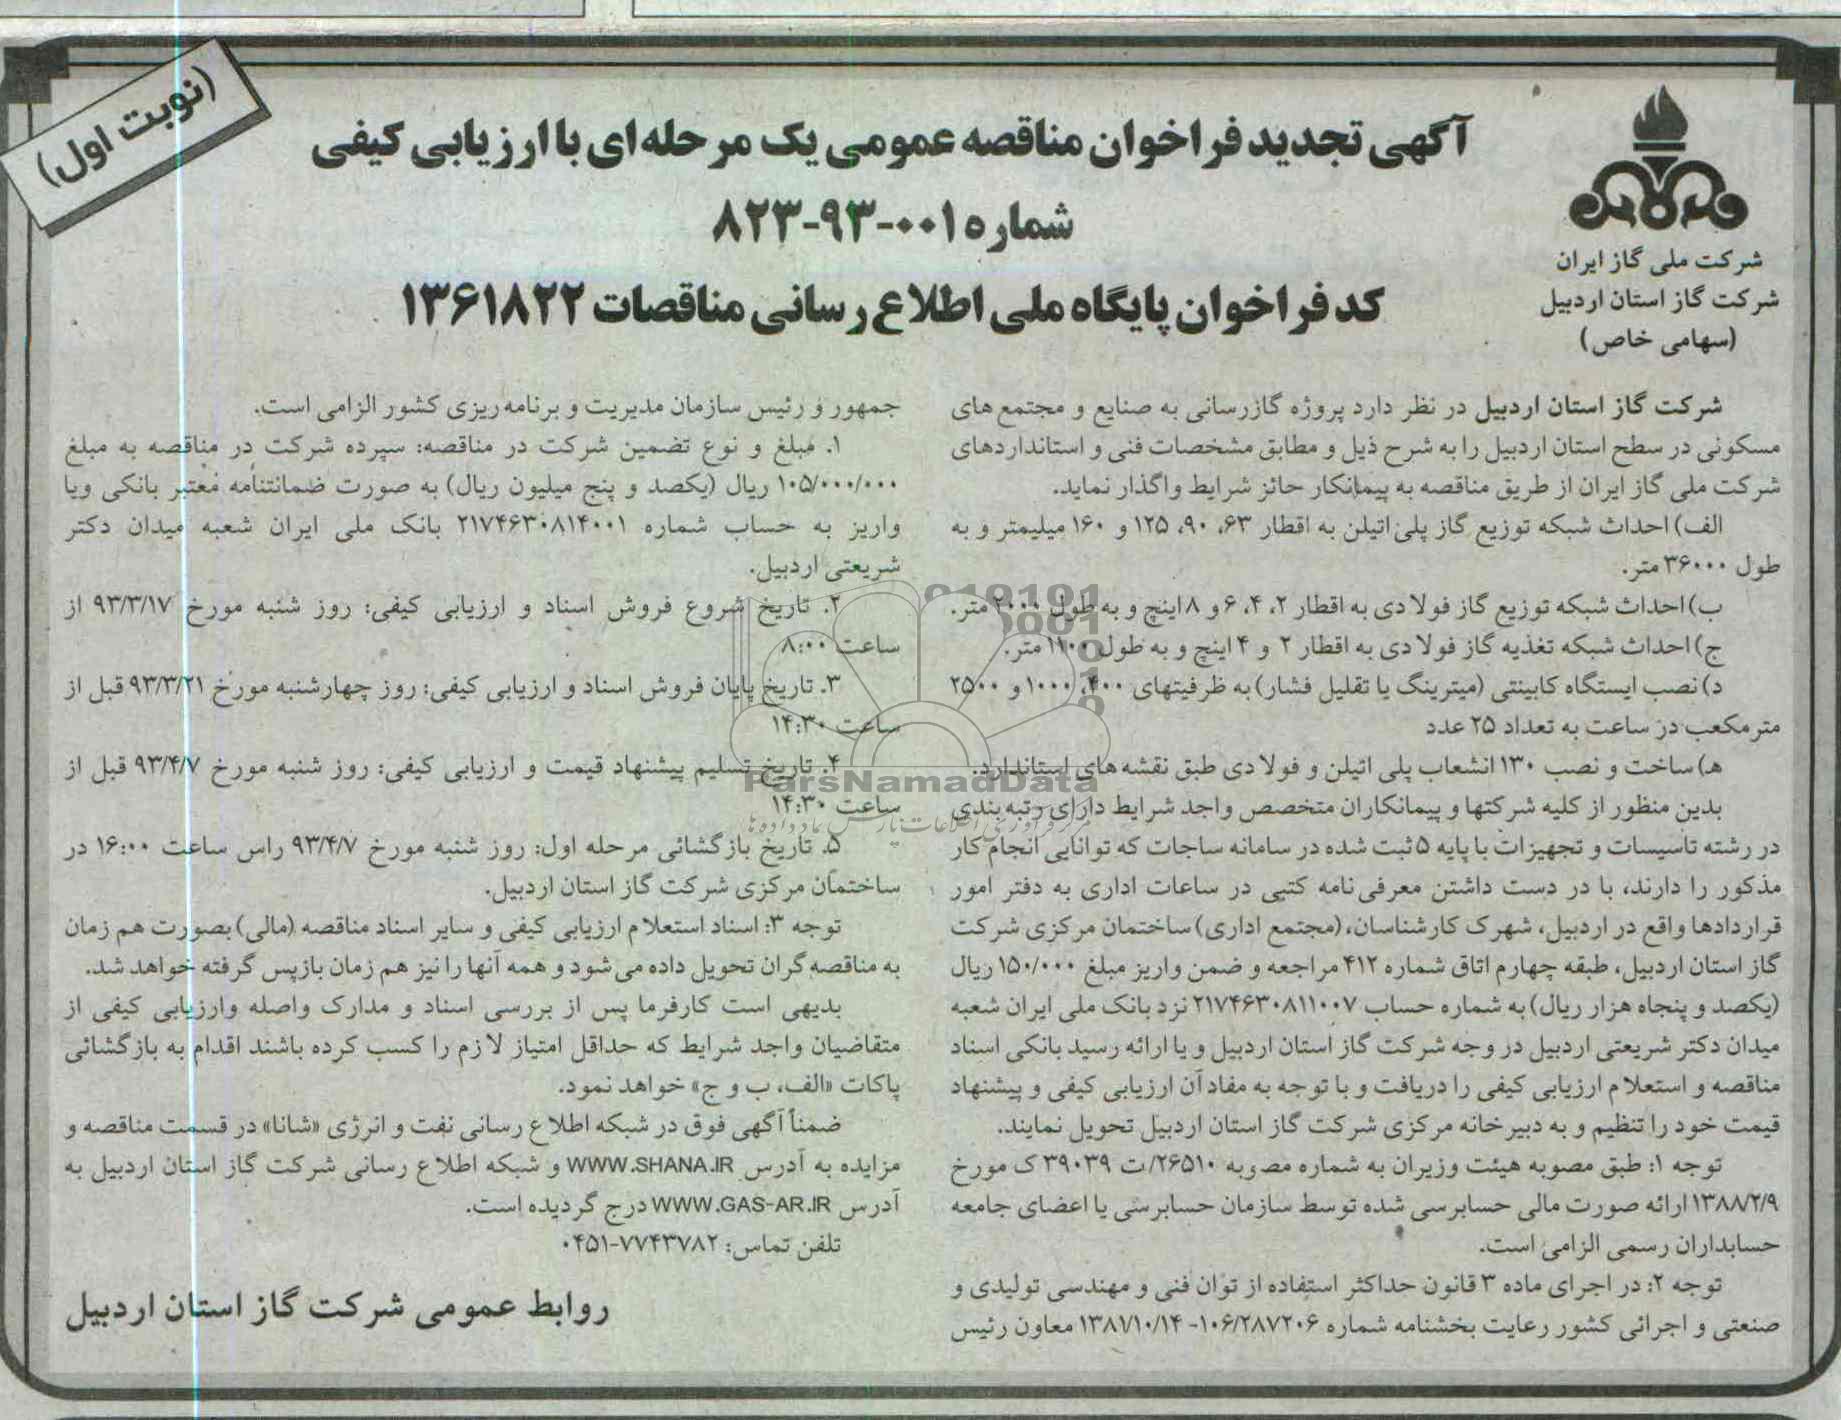 (نوبت اول)
آگهی تجدید فراخوان مناقصه عمومی یک مرحله‌ای با ارزیابی کیفی
شماره ۰۰۱-۹۳-۸۲۳
کد فراخوان پایگاه ملی اطلاع رسانی مناقصات ۱۳۶۱۸۲۲
شرکت ملی گاز ایران
شرکت گاز استان اردبیل
(سهامی خاص)
شرکت گاز استان اردبیل در نظر دارد پروژه گازرسانی به صنایع و مجتمع های
مسکونی در سطح استان اردبیل را به شرح ذیل و مطابق مشخصات فنی و استانداردهای
شرکت ملی گاز ایران از طریق مناقصه به پیمانکار حائز شرایط واگذار نماید.
الف) احداث شبکه توزیع گاز پلی اتیلن به اقطار ۶۳، ۹۰، ۱۲۵ و ۱۶۰ میلیمتر و به
طول ۳۶۰۰۰ متر.
ب) احداث شبکه توزیع گاز فولادی به اقطار ۲، ۴، ۶ و ۸ اینچ و به طول ۲۰۰۰ متر.
ج) احداث شبکه تغذیه گاز فولادی به اقطار ۲ و ۴ اینچ و به طول ۱۱۰۰ متر.
د) نصب ایستگاه کابینتی (میترینگ یا تقلیل فشار) به ظرفیتهای ۴۰۰، ۱۰۰۰ و ۲۵۰۰
مترمکعب در ساعت به تعداد ۲۵ عدد
ه) ساخت و نصب ۱۳۰ انشعاب پلی اتیلن و فولادی طبق نقشه های استاندارد.
بدین منظور از کلیه شرکتها و پیمانکاران متخصص واجد شرایط دارای رتبه بندی
در رشته تاسیسات و تجهیزات با پایه ۵ ثبت شده در سامانه ساجات که توانایی انجام کار
مذکور را دارند، با در دست داشتن معرفی نامه کتبی در ساعات اداری به دفتر امور
قراردادها واقع در اردبیل، شهرک کارشناسان، (مجتمع اداری) ساختمان مرکزی شرکت
گاز استان اردبیل، طبقه چهارم اتاق شماره ۴۱۲ مراجعه و ضمن واریز مبلغ ۱۵۰/۰۰۰ ریال
(یکصد و پنجاه هزار ریال) به شماره حساب ۲۱۷۴۶۳۰۸۱۱۰۰۷ نزد بانک ملی ایران شعبه
میدان دکتر شریعتی اردبیل در وجه شرکت گاز استان اردبیل و یا ارائه رسید بانکی اسناد
مناقصه و استعلام ارزیابی کیفی را دریافت و با توجه به مفاد آن ارزیابی کیفی و پیشنهاد
قیمت خود را تنظیم و به دبیرخانه مرکزی شرکت گاز استان اردبیل تحویل نمایند.
توجه ۱: طبق مصوبه هیئت وزیران به شماره مصوبه ۲۶۵۱۰/ت ۳۹۰۳۹ ک مورخ
۱۳۸۸/۲/۹ ارائه صورت مالی حسابرسی شده توسط سازمان حسابرسی یا اعضای جامعه
حسابداران رسمی الزامی است.
توجه ۲: در اجرای ماده ۳ قانون حداکثر استفاده از توان فنی و مهندسی تولیدی و
صنعتی و اجرائی کشور رعایت بخشنامه شماره ۱۰۶/۲۸۷۲۰۶- ۱۳۸۱/۱۰/۱۴ معاون رئیس
جمهور و رئیس سازمان مدیریت و برنامه ریزی کشور الزامی است.
۱. مبلغ و نوع تضمین شرکت در مناقصه: سپرده شرکت در مناقصه به مبلغ
۱۰۵/۰۰۰/۰۰۰ ریال (یکصد و پنج میلیون ریال) به صورت ضمانتنامه معتبر بانکی ویا
واریز به حساب شماره ۲۱۷۴۶۳۰۸۱۴۰۰۱ بانک ملی ایران شعبه میدان دکتر
شریعتی اردبیل.
۲. تاریخ شروع فروش اسناد و ارزیابی کیفی: روز شنبه مورخ ۹۳/۳/۱۷ از
ساعت ۸:۰۰
۳. تاریخ پایان فروش اسناد و ارزیابی کیفی: روز چهارشنبه مورخ ۹۳/۳/۲۱ قبل از
ساعت ۱۴:۳۰
۴. تاریخ تسلیم پیشنهاد قیمت و ارزیابی کیفی: روز شنبه مورخ ۹۳/۴/۷ قبل از
ساعت ۱۴:۳۰
۵. تاریخ بازگشائی مرحله اول: روز شنبه مورخ ۹۳/۴/۷ راس ساعت ۱۶:۰۰ در
ساختمان مرکزی شرکت گاز استان اردبیل.
توجه ۳: اسناد استعلام ارزیابی کیفی و سایر اسناد مناقصه (مالی) بصورت هم زمان
به مناقصه گران تحویل داده می شود و همه آنها را نیز هم زمان بازپس گرفته خواهد شد.
بدیهی است کارفرما پس از بررسی اسناد و مدارک واصله وارزیابی کیفی از
متقاضیان واجد شرایط که حداقل امتیاز لازم را کسب کرده باشند اقدام به بازگشائی
پاکات «الف، ب و ج» خواهد نمود.
ضمناً آگهی فوق در شبکه اطلاع رسانی نفت و انرژی «شانا» در قسمت مناقصه و
مزایده به آدرس WWW.SHANA.IR و شبکه اطلاع رسانی شرکت گاز استان اردبیل به
آدرس WWW.GAS-AR.IR درج گردیده است.
تلفن تماس: ۷۷۴۳۷۸۲-۰۴۵۱
روابط عمومی شرکت گاز استان اردبیل
ParsNamadData